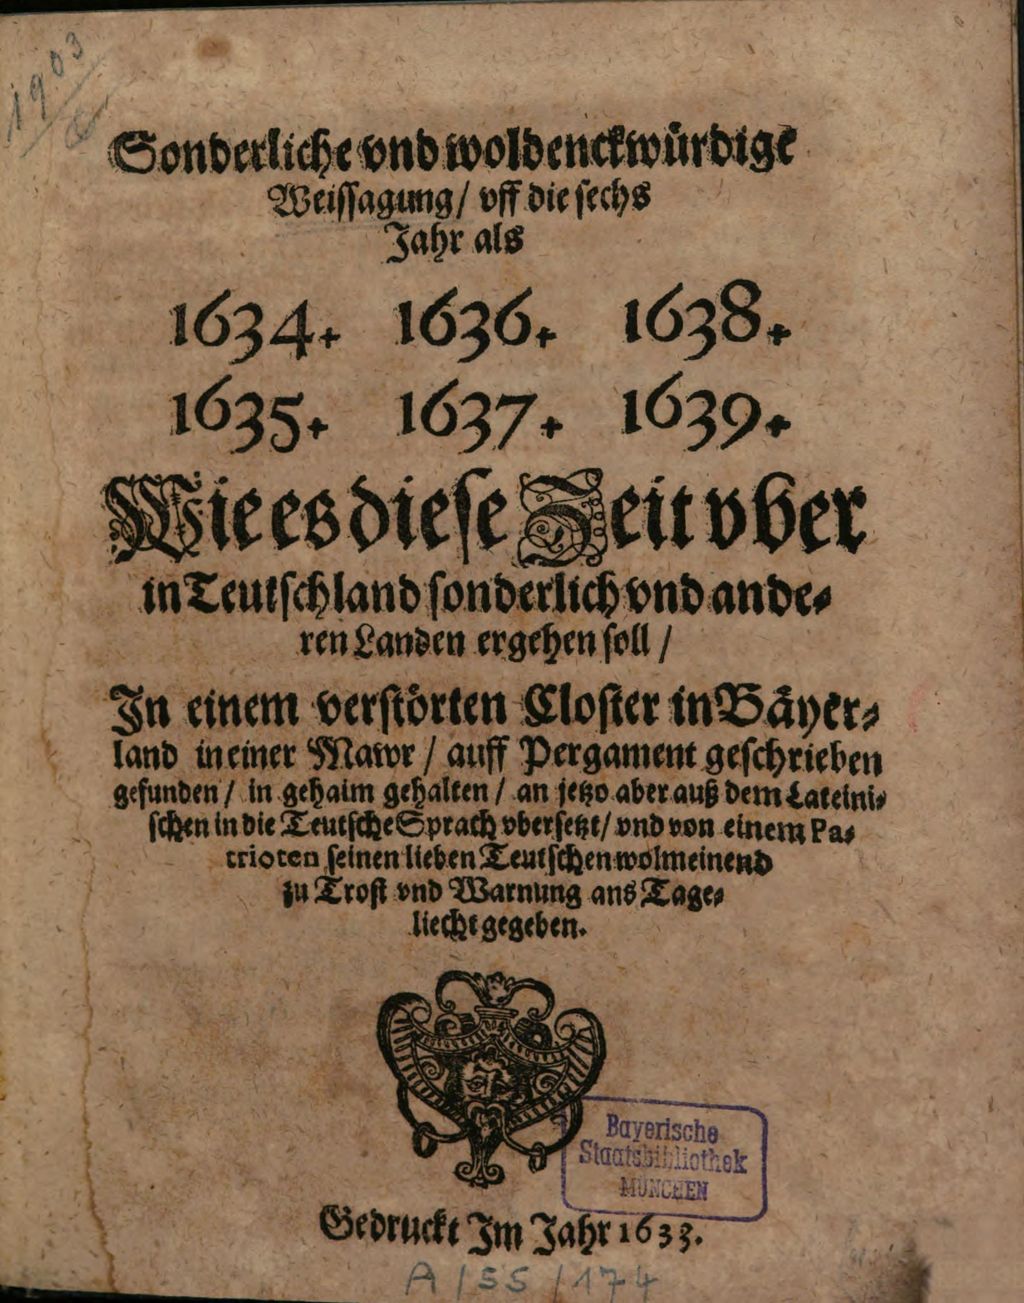 1903
Sonderliche vnd woldenckwürdige
Weissagung/ vff die sechs
Jahr als
1634. 1636. 1638.
1635. 1637. 1639.
Wie es diese Zeit vber
in Teutschland sonderlich vnd ande-
ren Landen ergehen soll /
In einem verstörten Closter in Bäyer-
land in einer Mawr / auff Pergament geschrieben
gefunden / in gehaim gehalten / an jetzo aber auß dem Lateini-
schen in die Teutsche Sprach vbersetzt/ vnd von einem Pa-
trioten seinen lieben Teutschen wolmeinend
zu Trost vnd Warnung ans Tage-
liecht gegeben.
Bayerische
Staatsbibliothek
MÜNCHEN
Gedruckt Im Jahr 1633.
A/SS/174